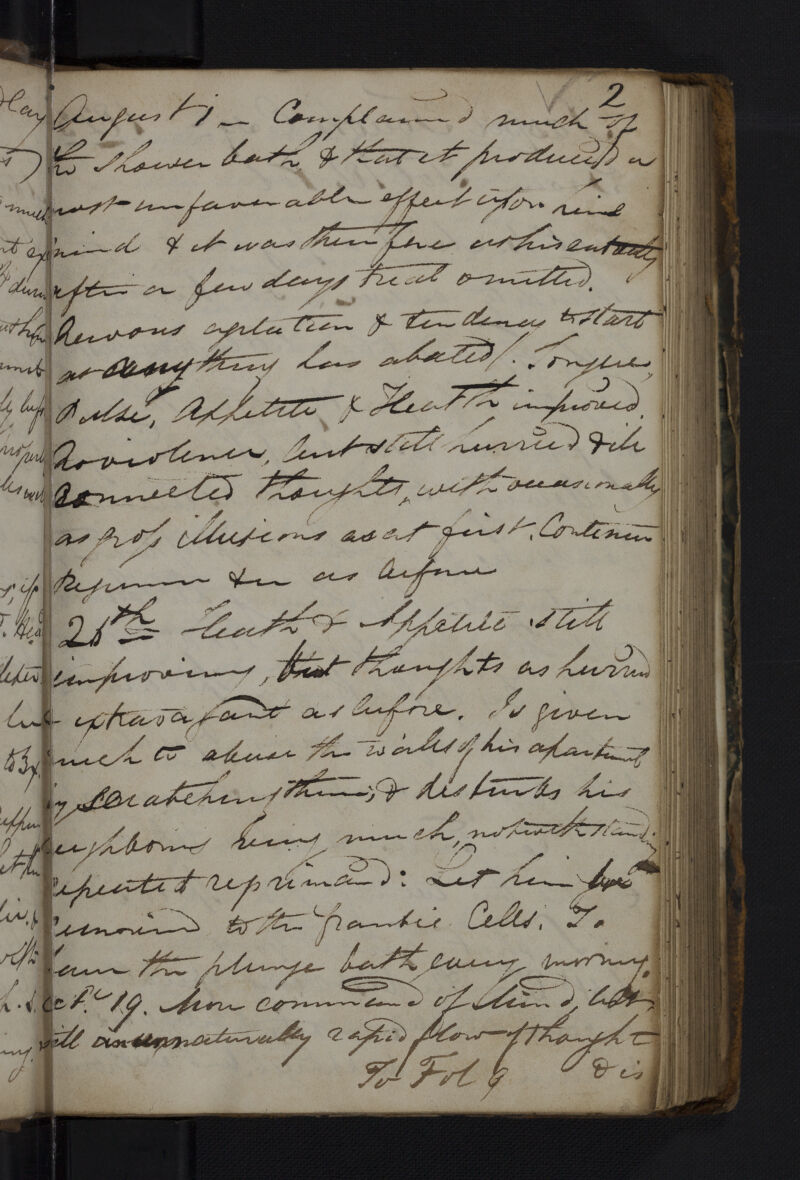 2
August 1 - Complained much of
the Shower bath & that it produced a
most unfavorable effect upon his
mind & it was therefore at his
after a few days trial omitted.
Nervous agitation & tendency to start
at anything has abated. Tongue,
Pulse, Appetite & Health improved.
No violence, but still hurried & ill
connected thoughts, with occasionally
as gross illusions as at first. Continue
Regimen as before
25th Health & Appetite still
improving, but thoughts as hurried
& extravagant as before. Is given
much to abuse the walls of his apartment
by scratching them, & disturbs his
neighbours very much, notwithstanding
repeated reprimand: Let him be
removed to the frantic Cells. To
have the plunge bath every morning.
Sept. 19. More command of Mind, but
still an unnaturally rapid flow of thought
To Fol 9 & is